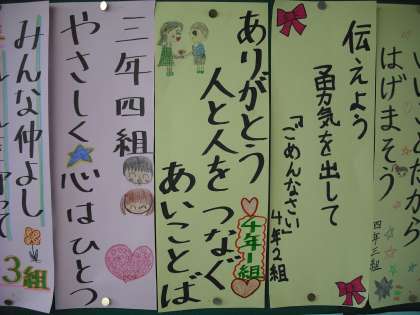 はげまそう
四年三組
伝えよう
勇気を出して
「ごめんなさい」
4年2組
ありがとう
人と人をつなぐ
あいことば
4年1組
三年四組
やさしく心はひとつ
みんな仲よし
3組